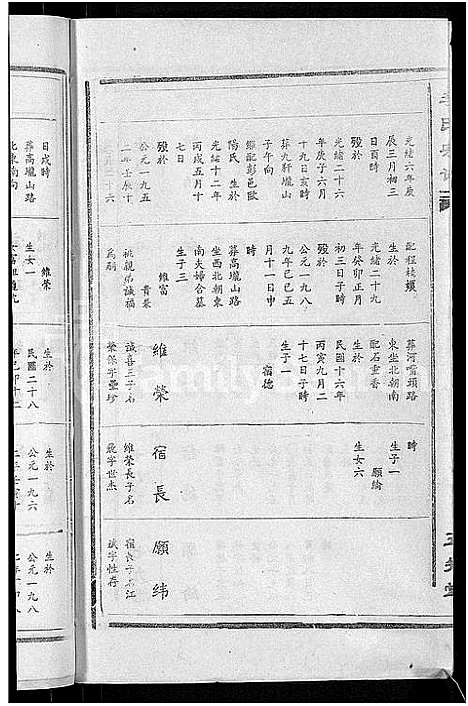 光緒六年庚
辰三月初三
日酉時
殁於
光緒二十六
年庚子六月
十九日亥時
葬九肝壠山
子午向
繼配彭邑歐
陽氏 生於
光緒十二年
丙戌五月十
七日
殁於
公元一九五
二年壬辰十
配程枝嬌
生於
光緒二十九
年癸卯正月
初三日子時
殁於
公元一九八
九年己巳五
月十一日申
時
葬高壠山路
坐西北朝東
南夫婦合墓
生子三
維富
貴榮
祧親弟誠福
為嗣
葬河嘴頭路
東坐北朝南
配石重香
生於
民國十六年
丙寅九月二
十七日子時
生子一
宿德
維榮
誠喜三子名
時
生子一
願綸
生女六
宿長
維榮長子名
願緯
宿長子名江
日戌時
葬高壠山路
北東南向
維榮
生女一
生於
民國二十八
年己卯十二
生於
公元一九六
生於
公元一九八